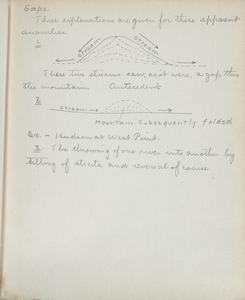 Gaps.
Three explanations are given for these apparent
anomalies.
1.
STREAM STREAM
These two streams saw, as it were, a gap thru
the mountain. Antecedent
2.
STREAM
MOUNTAIN Subsequently folded
Ex. - Hudson at West Point.
3. The throwing of one river into another by
tilting of strata and reversal of course.